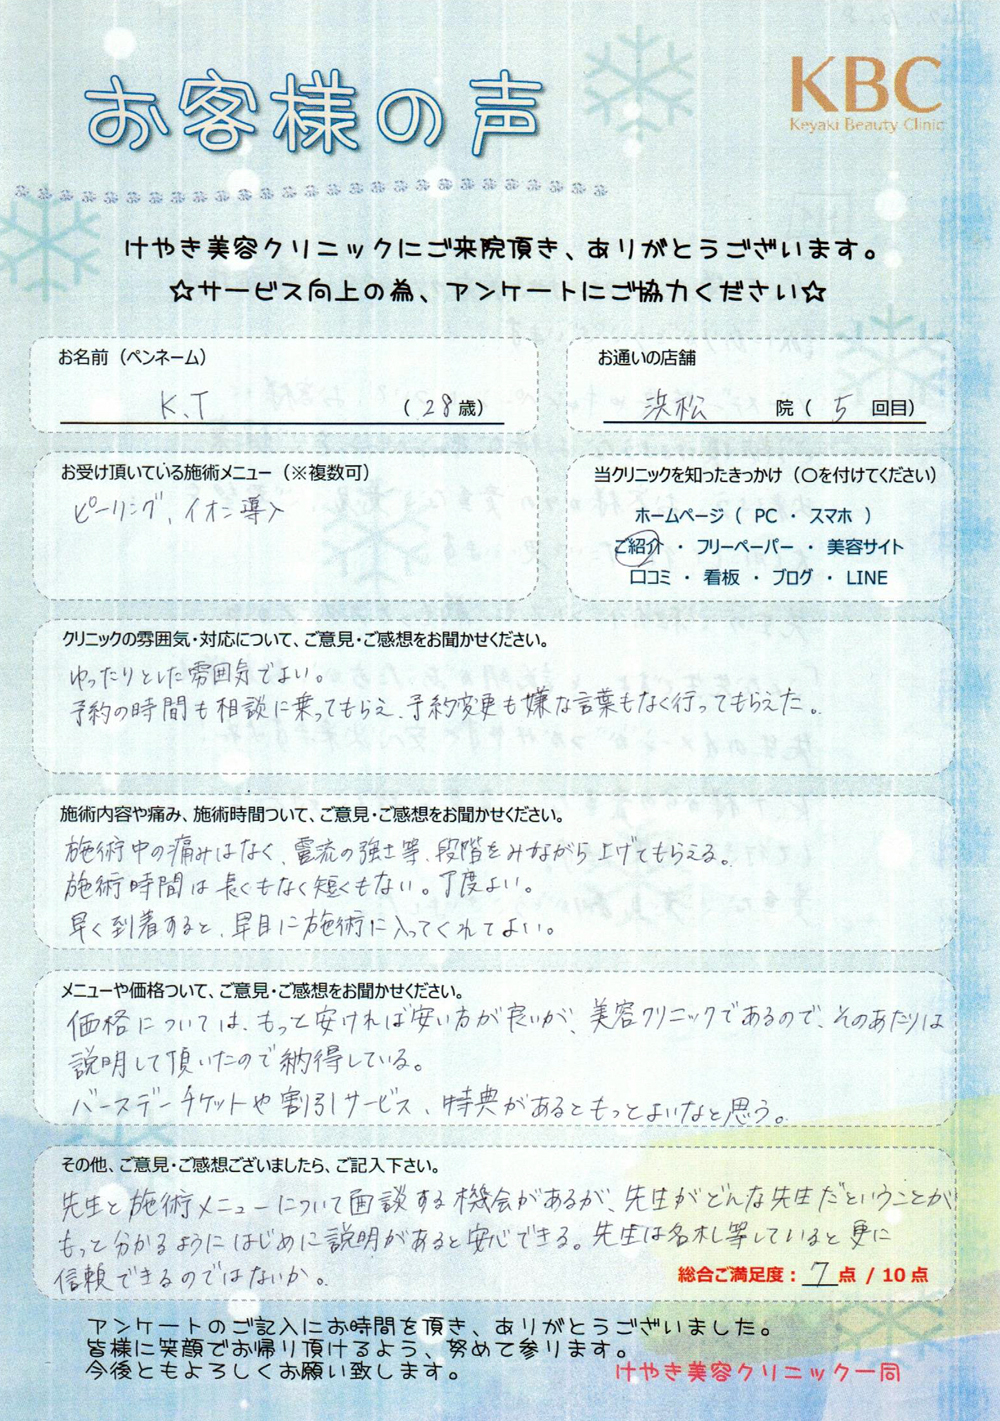 お客様の声
KBC
Keyaki Beauty Clinic
けやき美容クリニックにご来院頂き、ありがとうございます。
☆サービス向上の為、アンケートにご協力ください☆
お名前（ペンネーム）
K.T （28歳）
お通いの店舗
浜松 院（ 5 回目）
お受け頂いている施術メニュー（※複数可）
ピーリング、イオン導入
当クリニックを知ったきっかけ（〇を付けてください）
ホームページ（ PC ・ スマホ ）
ご紹介 ・ フリーペーパー ・ 美容サイト
口コミ ・ 看板 ・ ブログ ・ LINE
クリニックの雰囲気・対応について、ご意見・ご感想をお聞かせください。
ゆったりとした雰囲気でよい。
予約の時間も相談に乗ってもらえ、予約変更も嫌な言葉もなく行ってもらえた。
施術内容や痛み、施術時間ついて、ご意見・ご感想をお聞かせください。
施術中の痛みはなく、電流の強さ等、段階をみながら上げてもらえる。
施術時間は長くもなく短くもない。丁度よい。
早く到着すると、早目に施術に入ってくれてよい。
メニューや価格ついて、ご意見・ご感想をお聞かせください。
価格については、もっと安ければ安い方が良いが、美容クリニックであるので、そのあたりは
説明して頂いたので納得している。
バースデーチケットや割引サービス、特典があるともっとよいなと思う。
その他、ご意見・ご感想ございましたら、ご記入下さい。
先生と施術メニューについて面談する機会があるが、先生がどんな先生だということが
もっと分かるようにはじめに説明があると安心できる。先生は名札等していると更に
信頼できるのではないか。
総合ご満足度：7点 / 10点
アンケートのご記入にお時間を頂き、ありがとうございました。
皆様に笑顔でお帰り頂けるよう、努めて参ります。
今後ともよろしくお願い致します。
けやき美容クリニック一同